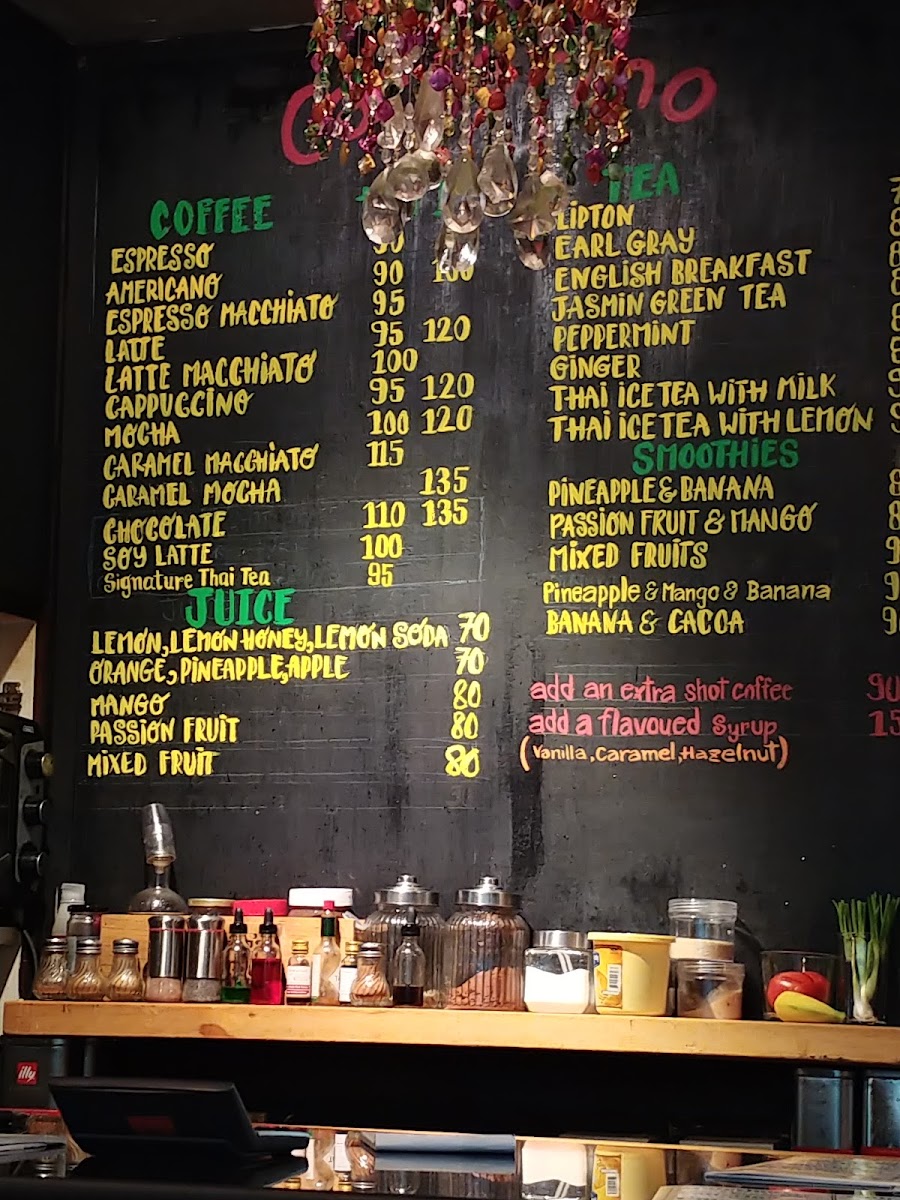 COFFEE
ESPRESSO
AMERICANO 90
ESPRESSO MACCHIATO 95
LATTE 95 120
LATTE MACCHIATO 100
CAPPUCCINO 95 120
MOCHA 100 120
CARAMEL MACCHIATO 115
CARAMEL MOCHA 135
CHOCOLATE 110 135
SOY LATTE 100
Signature Thai Tea 95
JUICE
LEMON, LEMON HONEY, LEMON SODA 70
ORANGE, PINEAPPLE, APPLE 70
MANGO 80
PASSION FRUIT 80
MIXED FRUIT 80
TEA
LIPTON
EARL GRAY
ENGLISH BREAKFAST
JASMIN GREEN TEA
PEPPERMINT
GINGER
THAI ICE TEA WITH MILK
THAI ICE TEA WITH LEMON
SMOOTHIES
PINEAPPLE & BANANA
PASSION FRUIT & MANGO
MIXED FRUITS
Pineapple & Mango & Banana
BANANA & CACOA
add an extra shot coffee
add a flavoued syrup
(Vanilla, Caramel, Hazelnut)
illy